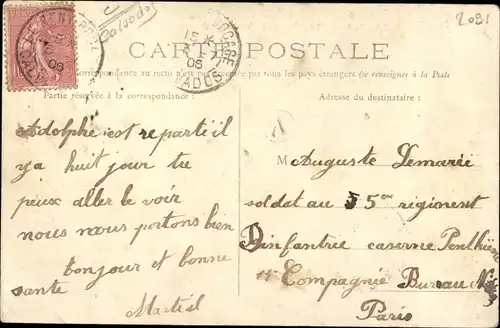 2091
Calvados
CARTE POSTALE
Correspondance au recto n'est pas acceptée par tous les pays étrangers (se renseigner à la Poste
Partie réservée à la correspondance :
Adresse du destinataire :
Adolphe est reparti il
y a huit jour tu
peux aller le voir
nous nous portons bien
bonjour et bonne
sante
Martial
M Auguste Lemarié
soldat au 5eme régiment
Dinfantrie caserne Penthièvre
11 Compagnie Bureau
Paris